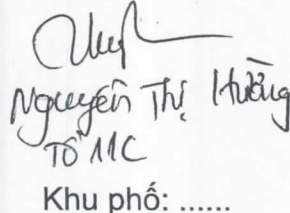 Nguyễn Thị Hường
Tổ 11C
Khu phố: ......